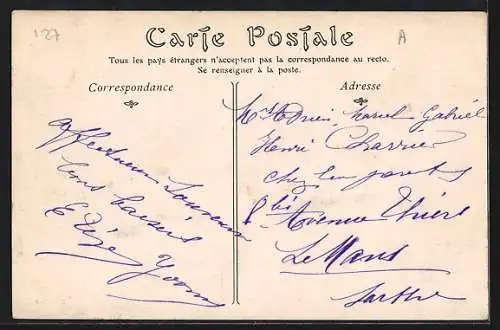 127
A
Carte Postale
Tous les pays étrangers n'acceptent pas la correspondance au recto.
Se renseigner à la poste.
Correspondance
Affectueux Souvenir
bons baisers
Adresse
Marcel Gabriel
Henri Charrier
chez leurs parents
8 bis Avenue Thiers
Le Mans
Sarthe